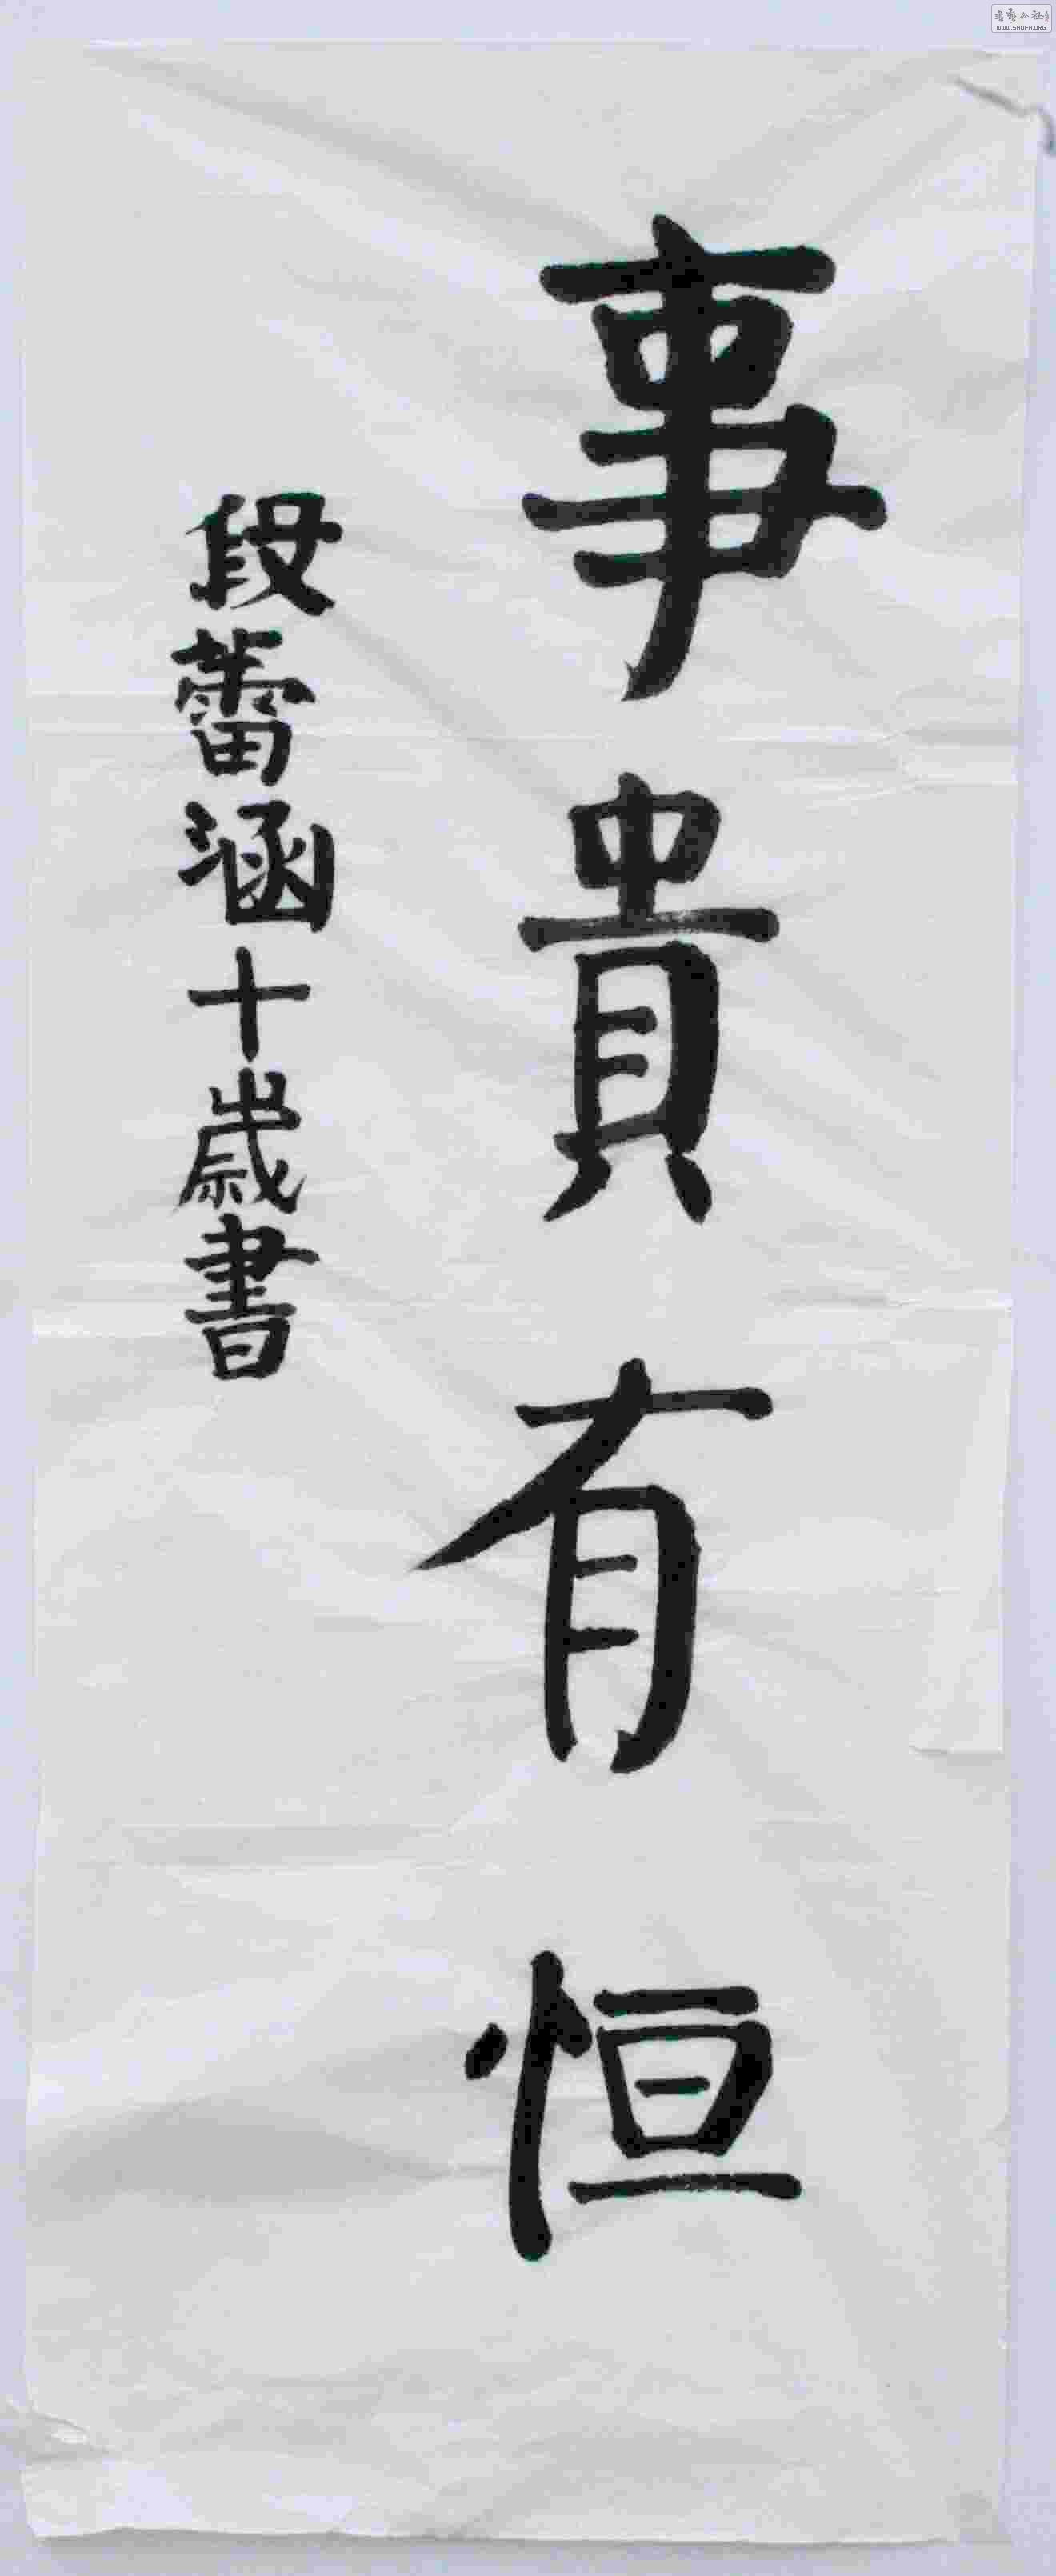 事貴有恒
段蕾涵十歲書
WWW.SHUFA.ORG